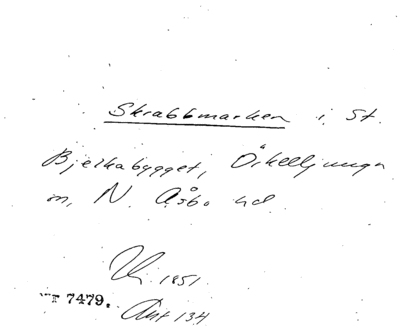 Skrabbmarken i St.
Bjelkabygget, Örkelljunga
n, N. Åsbo hd
1951
7479.
Ant 134